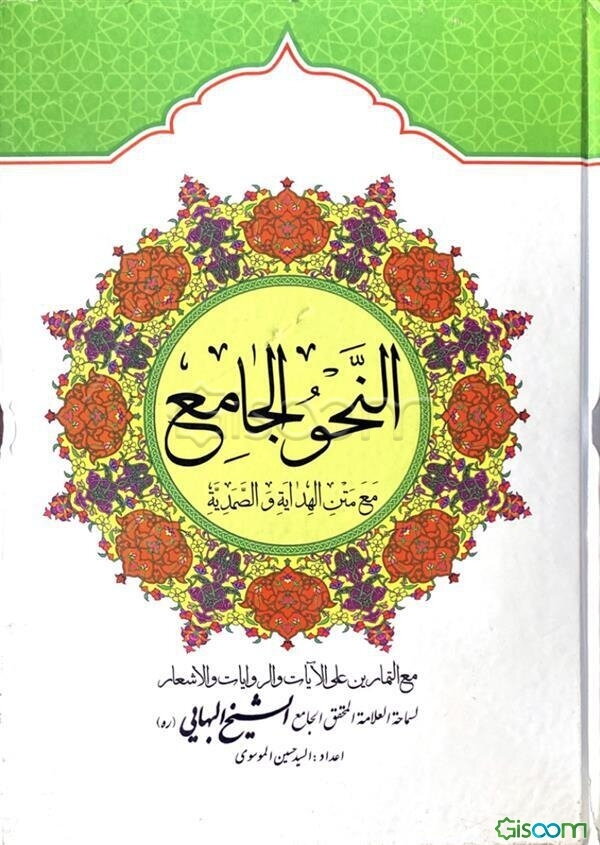 النَّحوُ الجامِع
مَعَ مَتنِ الهِدايَةِ وَ الصَّمَدِيَّةِ
مع التمارين على الآيات والروايات والاشعار
لسماحة العلامة المحقق الجامع الشيخ البهايي (ره)
اعداد: السيد حسين الموسوی
Gisoom
Gisoom